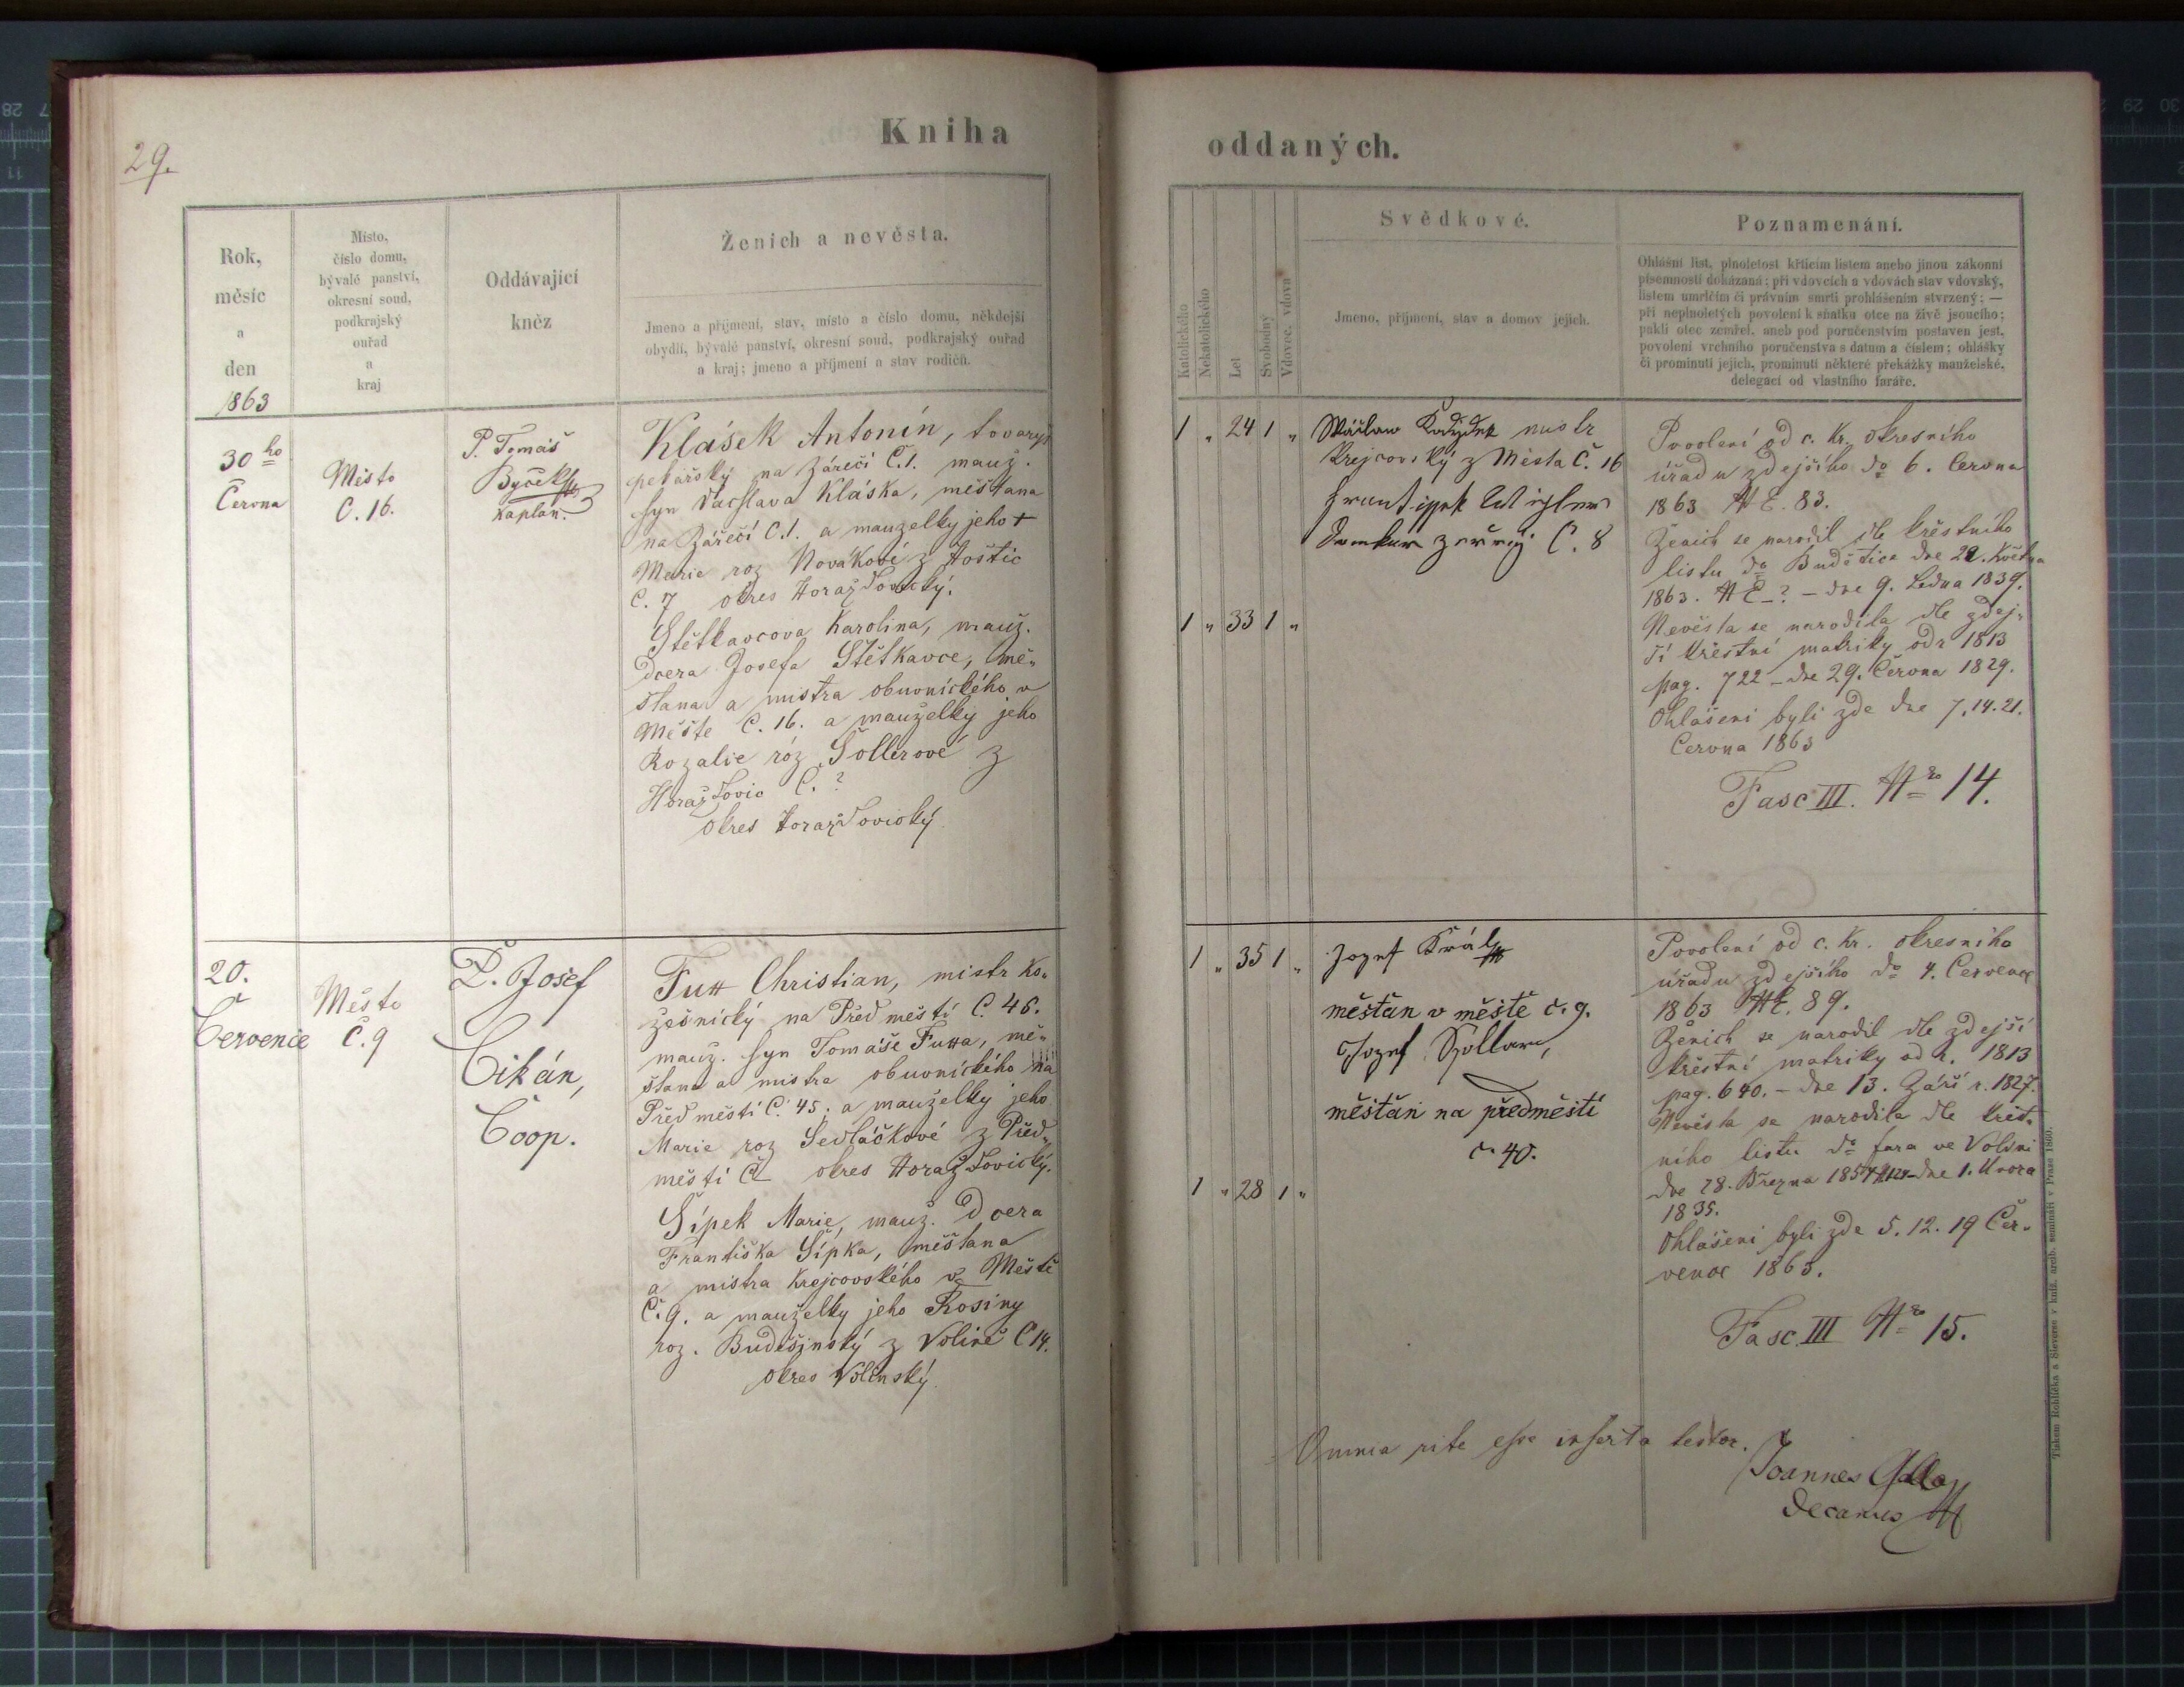 29.
Kniha
Rok,
měsíc
a
den
1863
Místo,
číslo domu,
bývalé panství,
okresní soud,
podkrajský
ouřad
a
kraj
Oddávající
kněz
Ženich a nevěsta.
Jmeno a příjmení, stav, místo a číslo domu, někdejší
obydlí, bývalé panství, okresní soud, podkrajský ouřad
a kraj; jmeno a příjmení a stav rodičů.
30ho
Června
Město
C. 16.
P. Tomáš
Byček
Kaplán.
Klásek Antonín, tovaryš
pekařský na Zářečí C.1. mauž.
syn Vácslava Kláska, měšťana
na Zářečí C.1. a mauzelky jeho +
Marie roz Novákové z Hoštic
C. 7 okres Horažďovický.
Štětkavcova Karolina, mauž.
dcera Josefa Štětkavce, mě-
šťana a mistra obuvnického v
Městě C. 16. a mauželky jeho
Rozalie róz. Šollerové z
Horažďovic C. ?
okres Horažďovický
20.
Července
Město
Č. 9
P. Josef
Cikán,
Coop.
Christian, mistr Ko-
žešnický na Předměstí C. 46.
mauž. syn Tomáše mě-
šťana a mistra obuvnického na
Předměstí C. 45. a mauželky jeho
Marie roz Sedláčkové z Před-
městí C okres Horažďovický.
Šípek Marie, mauž. Dcera
Františka Šípka, měšťana
a mistra Krejcovského v Městě
Č. 9. a mauželky jeho Rosiny
roz. Budešínský z Volině C 14.
okres Volinský
oddaných.
Katolického
Nekatolického
Let
Svobodný
Vdovec. vdova
Svědkové.
Jmeno, příjmení, stav a domov jejich.
Poznamenání.
Ohlášní list, plnoletost křticím listem aneho jinou zákonní
písemností dokázaná; při vdovcích a vdovách stav vdovský,
listem umrlčím či právním smrti prohlášením stvrzený; —
při neplnoletých povolení k sňatku otce na živě jsoucího;
pakli otec zemřel, aneb pod poručenstvím postaven jest,
povolení vrchního poručenstva s datum a číslem; ohlášky
či prominutí jejich, prominutí některé překážky manželské,
delegací od vlastního faráře.
1 " 24 1 "
mistr
Krejcovský z Města Č. 16
C. 8
1 " 33 1 "
Povolení od c. kr. okresního
úřadu zdejšího do 6. Června
1863 NE. 83.
Ženich se narodil dle křestního
listu do Budětice dne 22. Května
1863. NE_? - dne 9. Ledna 1839.
Nevěsta se narodila dle zdej-
ší křestní matriky od r 1813
pag. 722 - dne 29. Června 1829.
Ohlášeni byli zde dne 7. 14. 21.
Června 1863
Fasc III. Nro 14.
1 " 35 1 "
Jozef Král
měšťan v městě č. 9.
Jozef Šollar,
měšťan na předměstí
č. 40.
1 " 28 1 "
Povolení od c. kr. okresního
úřadu zdejšího do 4. Července
1863 NE. 89.
Ženich se narodil dle zdejší
křestní matriky od r. 1813
pag. 640. - dne 13. Září r. 1827.
Nevěsta se narodila dle křest-
ního listu do fara ve Volini
dne 28. Března dne 1. Února
1835.
Ohlášeni byli zde 5. 12. 19 Čer-
vence 1863.
Fasc. III Nro 15.
Omnia rite esse inserta testor.
Joannes
Decanus
Tiskem Rohlíčka a Sieverse v kníž. arcib. semináři v Praze 1860.